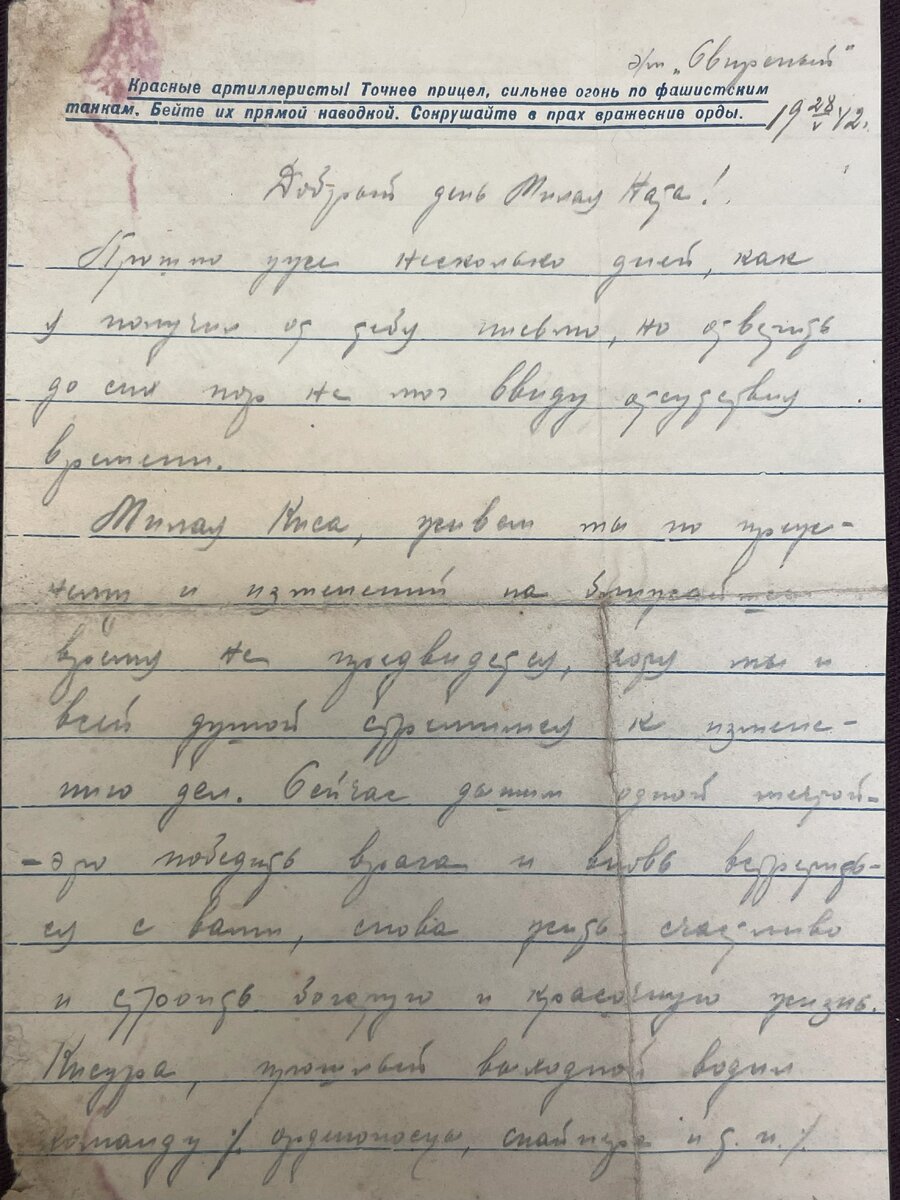 э/м „Свирепый"
Красные артиллеристы! Точнее прицел, сильнее огонь по фашистским
танкам. Бейте их прямой наводкой. Сокрушайте в прах вражеские орды.
19 28/V 42.
Добрый день Милая Ната!
Прошло уже несколько дней, как
я получил от тебя письмо, но ответить
до сих пор не мог ввиду отсутствия
времени.
Милая Киса, живем мы по преж-
нему и изменений на ближайшее
время не предвидется, хотя мы и
всей душой стремимся к измене-
нию дел. Сейчас дышим одной мечтой-
-это победить врага и вновь встретить-
ся с вами, снова жить счастливо
и строить богатую и красочную жизнь.
Кисура, прошлый выходной водил
команду /. орденоносцы, снайпера и т. п./.